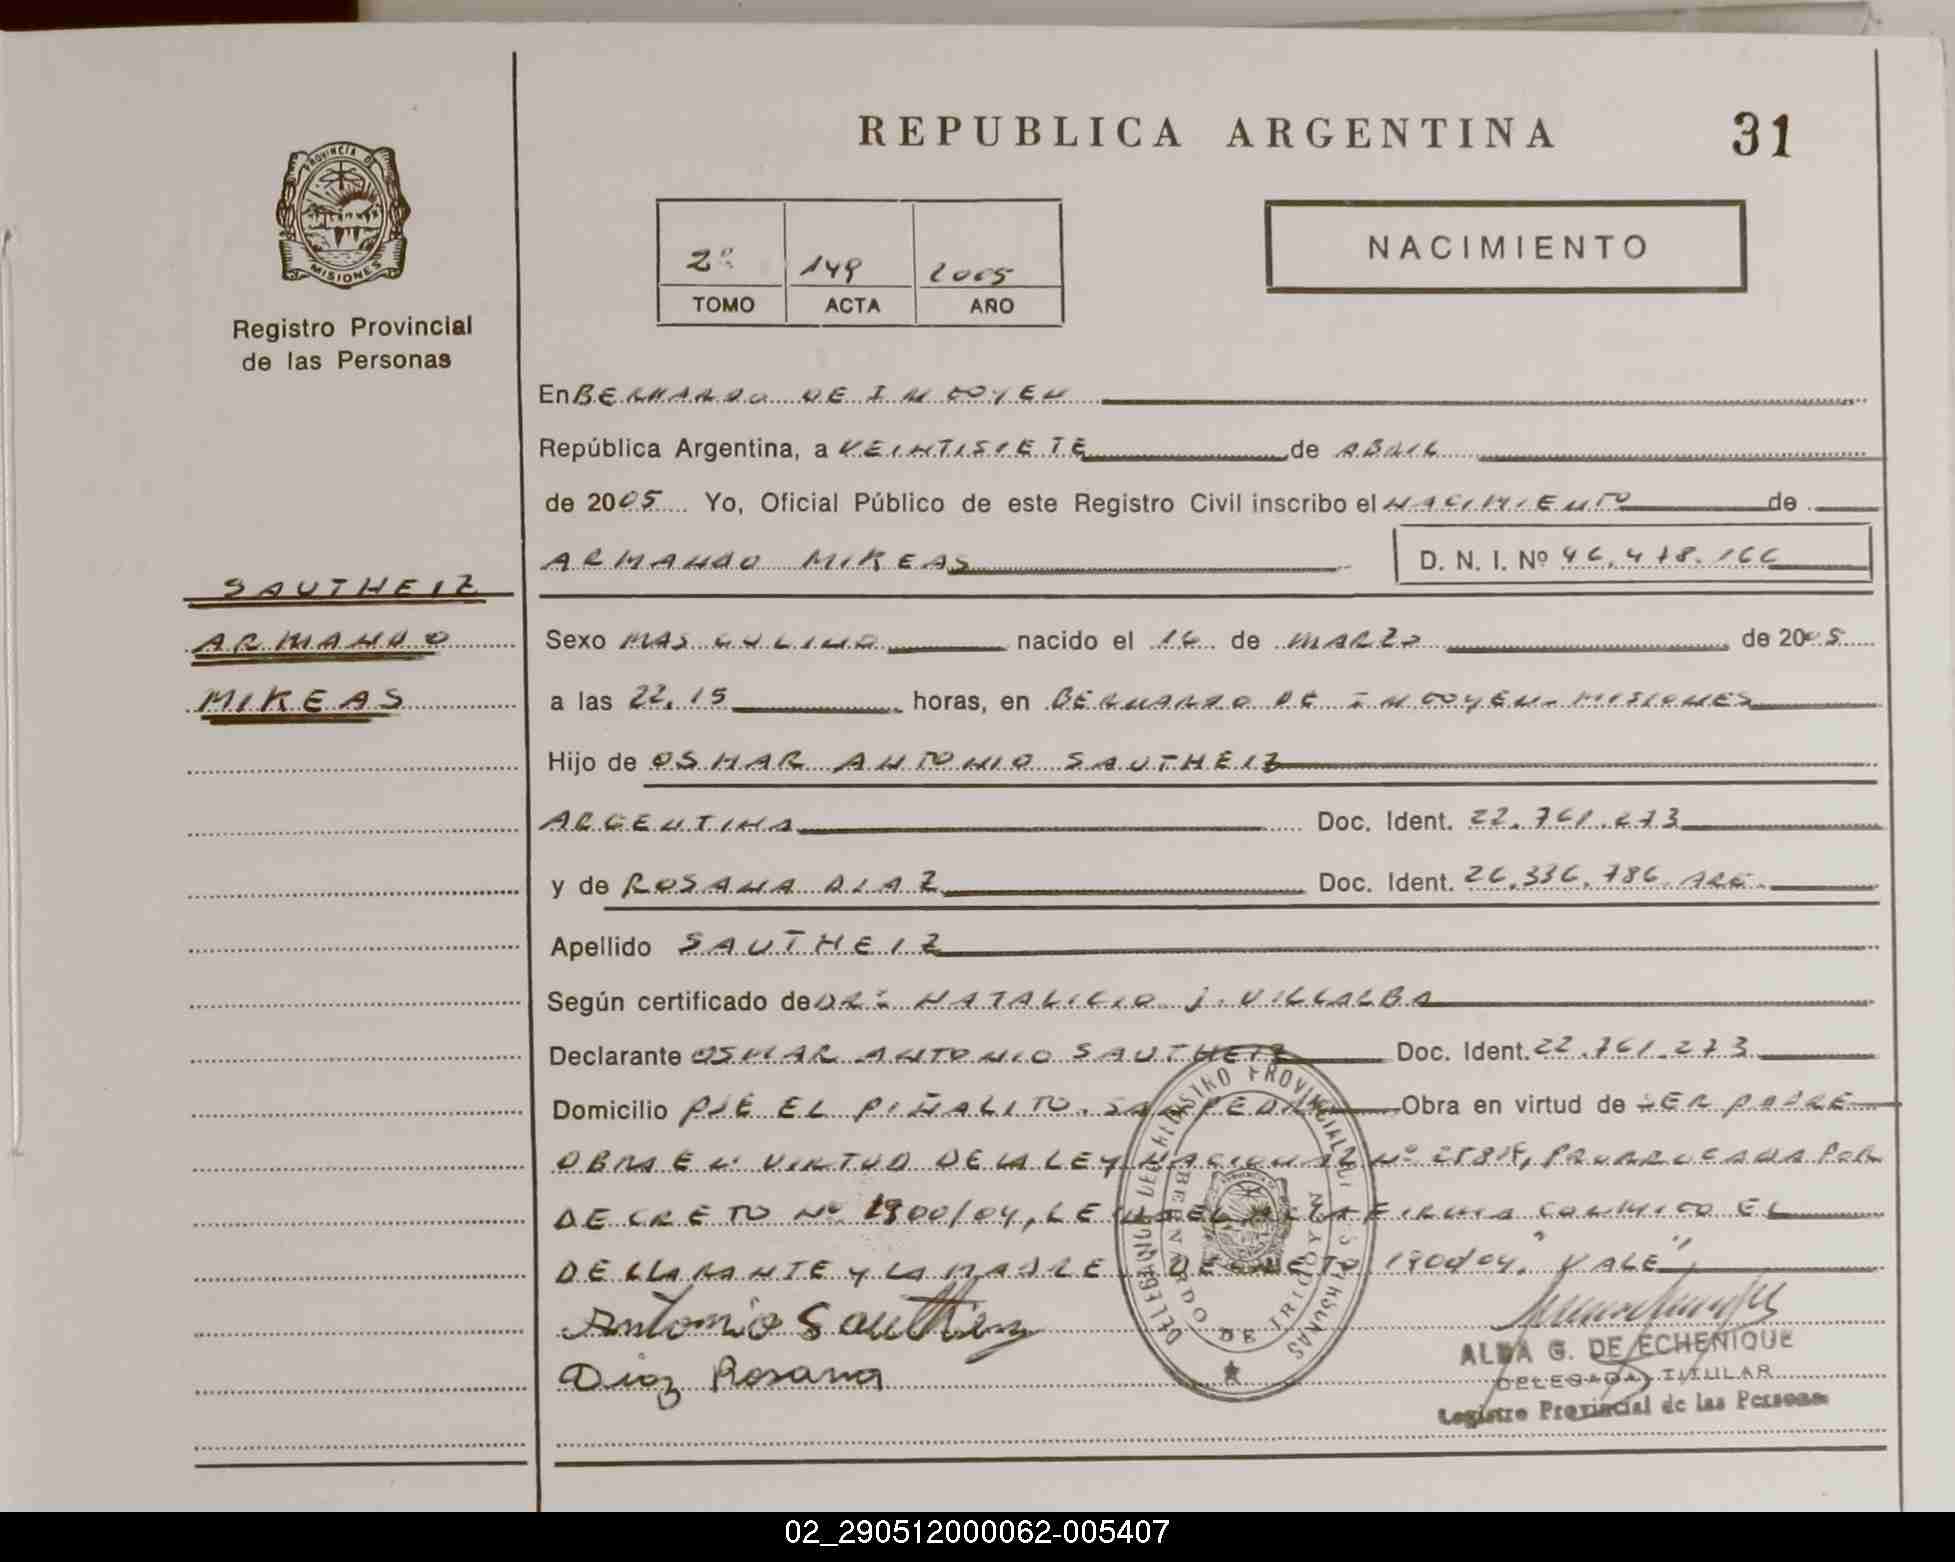 REPUBLICA ARGENTINA
31
PROVINCIA DE
MISIONES
Registro Provincial
de las Personas
NACIMIENTO
2º 149 2005
TOMO ACTA AÑO
En BERNARDO DE IRIGOYEN
República Argentina, a VEINTISIETE de ABRIL
de 2005 Yo, Oficial Público de este Registro Civil inscribo el NACIMIENTO de
ARMANDO MIKEAS D. N. I. Nº 46.478.166
SAUTHEIZ
ARMANDO
MIKEAS
Sexo MASCULINO nacido el 16 de MARZO de 2005
a las 22,15 horas, en BERNARDO DE IRIGOYEN-MISIONES
Hijo de OSMAR ANTONIO SAUTHEIZ
ARGENTINA Doc. Ident. 22.761.273
y de ROSANA DIAZ Doc. Ident. 26.336.786 ARG.
Apellido SAUTHEIZ
Según certificado de DR: NATALICIO J. VILLALBA
Declarante OSMAR ANTONIO SAUTHEIZ Doc. Ident. 22.761.273
Domicilio PJE EL PIÑALITO. SAN PEDRO Obra en virtud de SER PADRE
OBRA EN VIRTUD DE LA LEY NACIONAL Nº PRORROGADA POR
DECRETO Nº 1900/04, LEIDA EL ACTA FIRMA CONMIGO EL
DECLARANTE Y LA MADRE DECRETO 1900/04. "VALE"
Antonio Sautheiz
Diaz Rosana
DELEGACION DEL REGISTRO PROVINCIAL DE LAS PERSONAS
BERNARDO DE IRIGOYEN
ALBA G. DE ECHENIQUE
DELEGADA TITULAR
Registro Provincial de las Personas
02_290512000062-005407